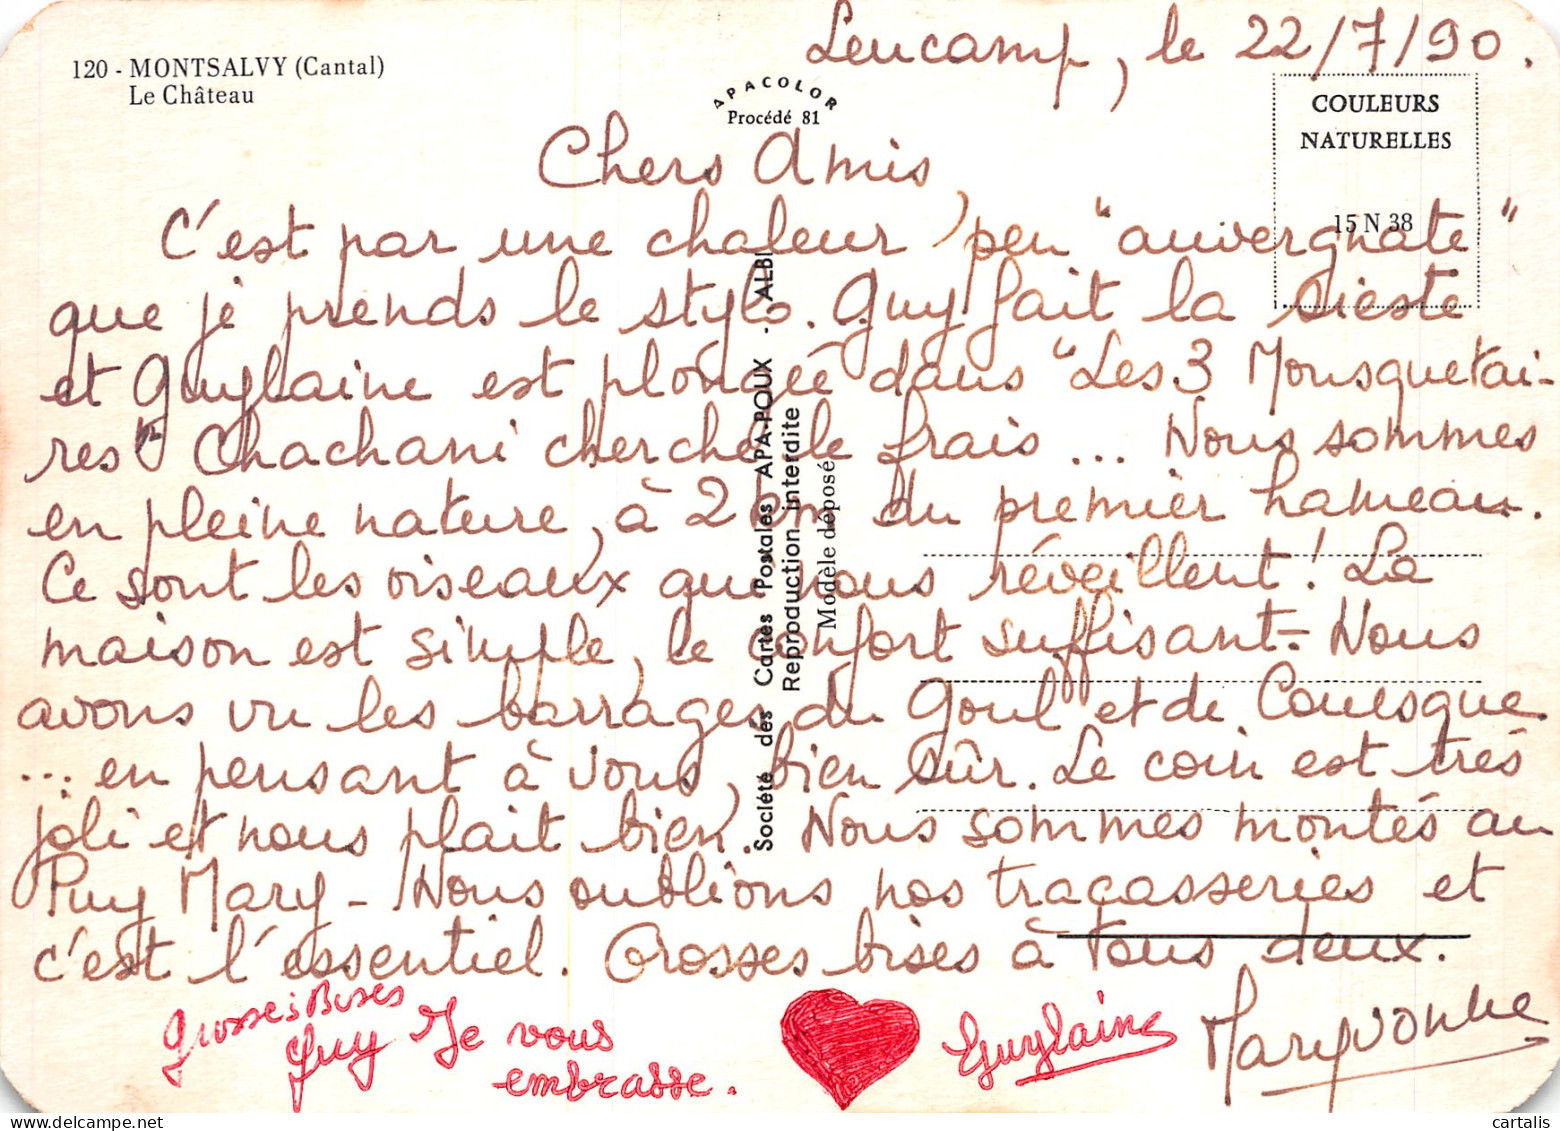 Leucamp, le 22/7/90.
120 - MONTSALVY (Cantal)
Le Château
APACOLOR
Procédé 81
COULEURS
NATURELLES
15 N 38
Chers Amis,
C'est par une chaleur peu "auvergnate"
que je prends le stylo. Guy fait la sieste
et Guylaine est plongée dans "Les 3 Mousquetai-
res" Chachani cherche le frais ... Nous sommes
en pleine nature, à 2 km du premier hameau.
Ce sont les oiseaux qui nous réveillent ! La
maison est simple, le confort suffisant - Nous
avons vu les barrages du Goul et de Couesque
... en pensant à vous, bien sûr. Le coin est très
joli et nous plait bien. Nous sommes montés au
Puy Mary - Nous oublions nos tracasseries et
c'est l'essentiel. Grosses bises à tous deux.
Grosses Bises
Guy
Je vous
embrasse.
Guylaine
Maryvonne
Société des Cartes Postales APA-POUX - ALBI
Reproduction interdite
Modèle déposé
cartalis